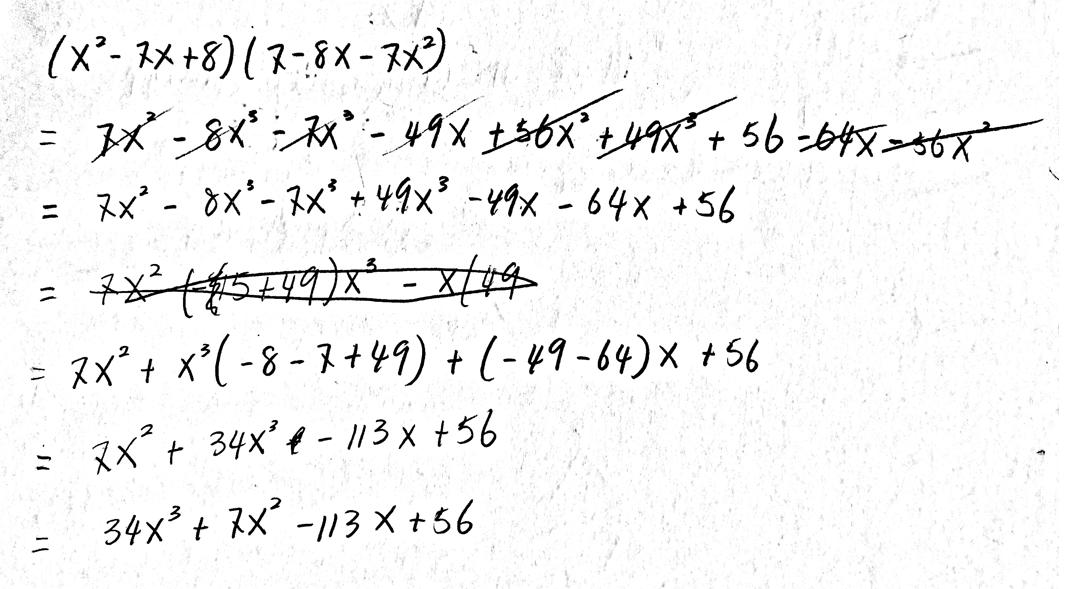 (x² - 7x + 8)(7 - 8x - 7x²)
= 7x² - 8x³ - 7x³ - 49x + 56x² + 49x³ + 56 - 64x - 56x²
= 7x² - 8x³ - 7x³ + 49x³ - 49x - 64x + 56
= 7x² (-15+49)x³ - x(49
= 7x² + x³(-8 - 7 + 49) + (-49 - 64)x + 56
= 7x² + 34x³ - 113x + 56
= 34x³ + 7x² - 113x + 56